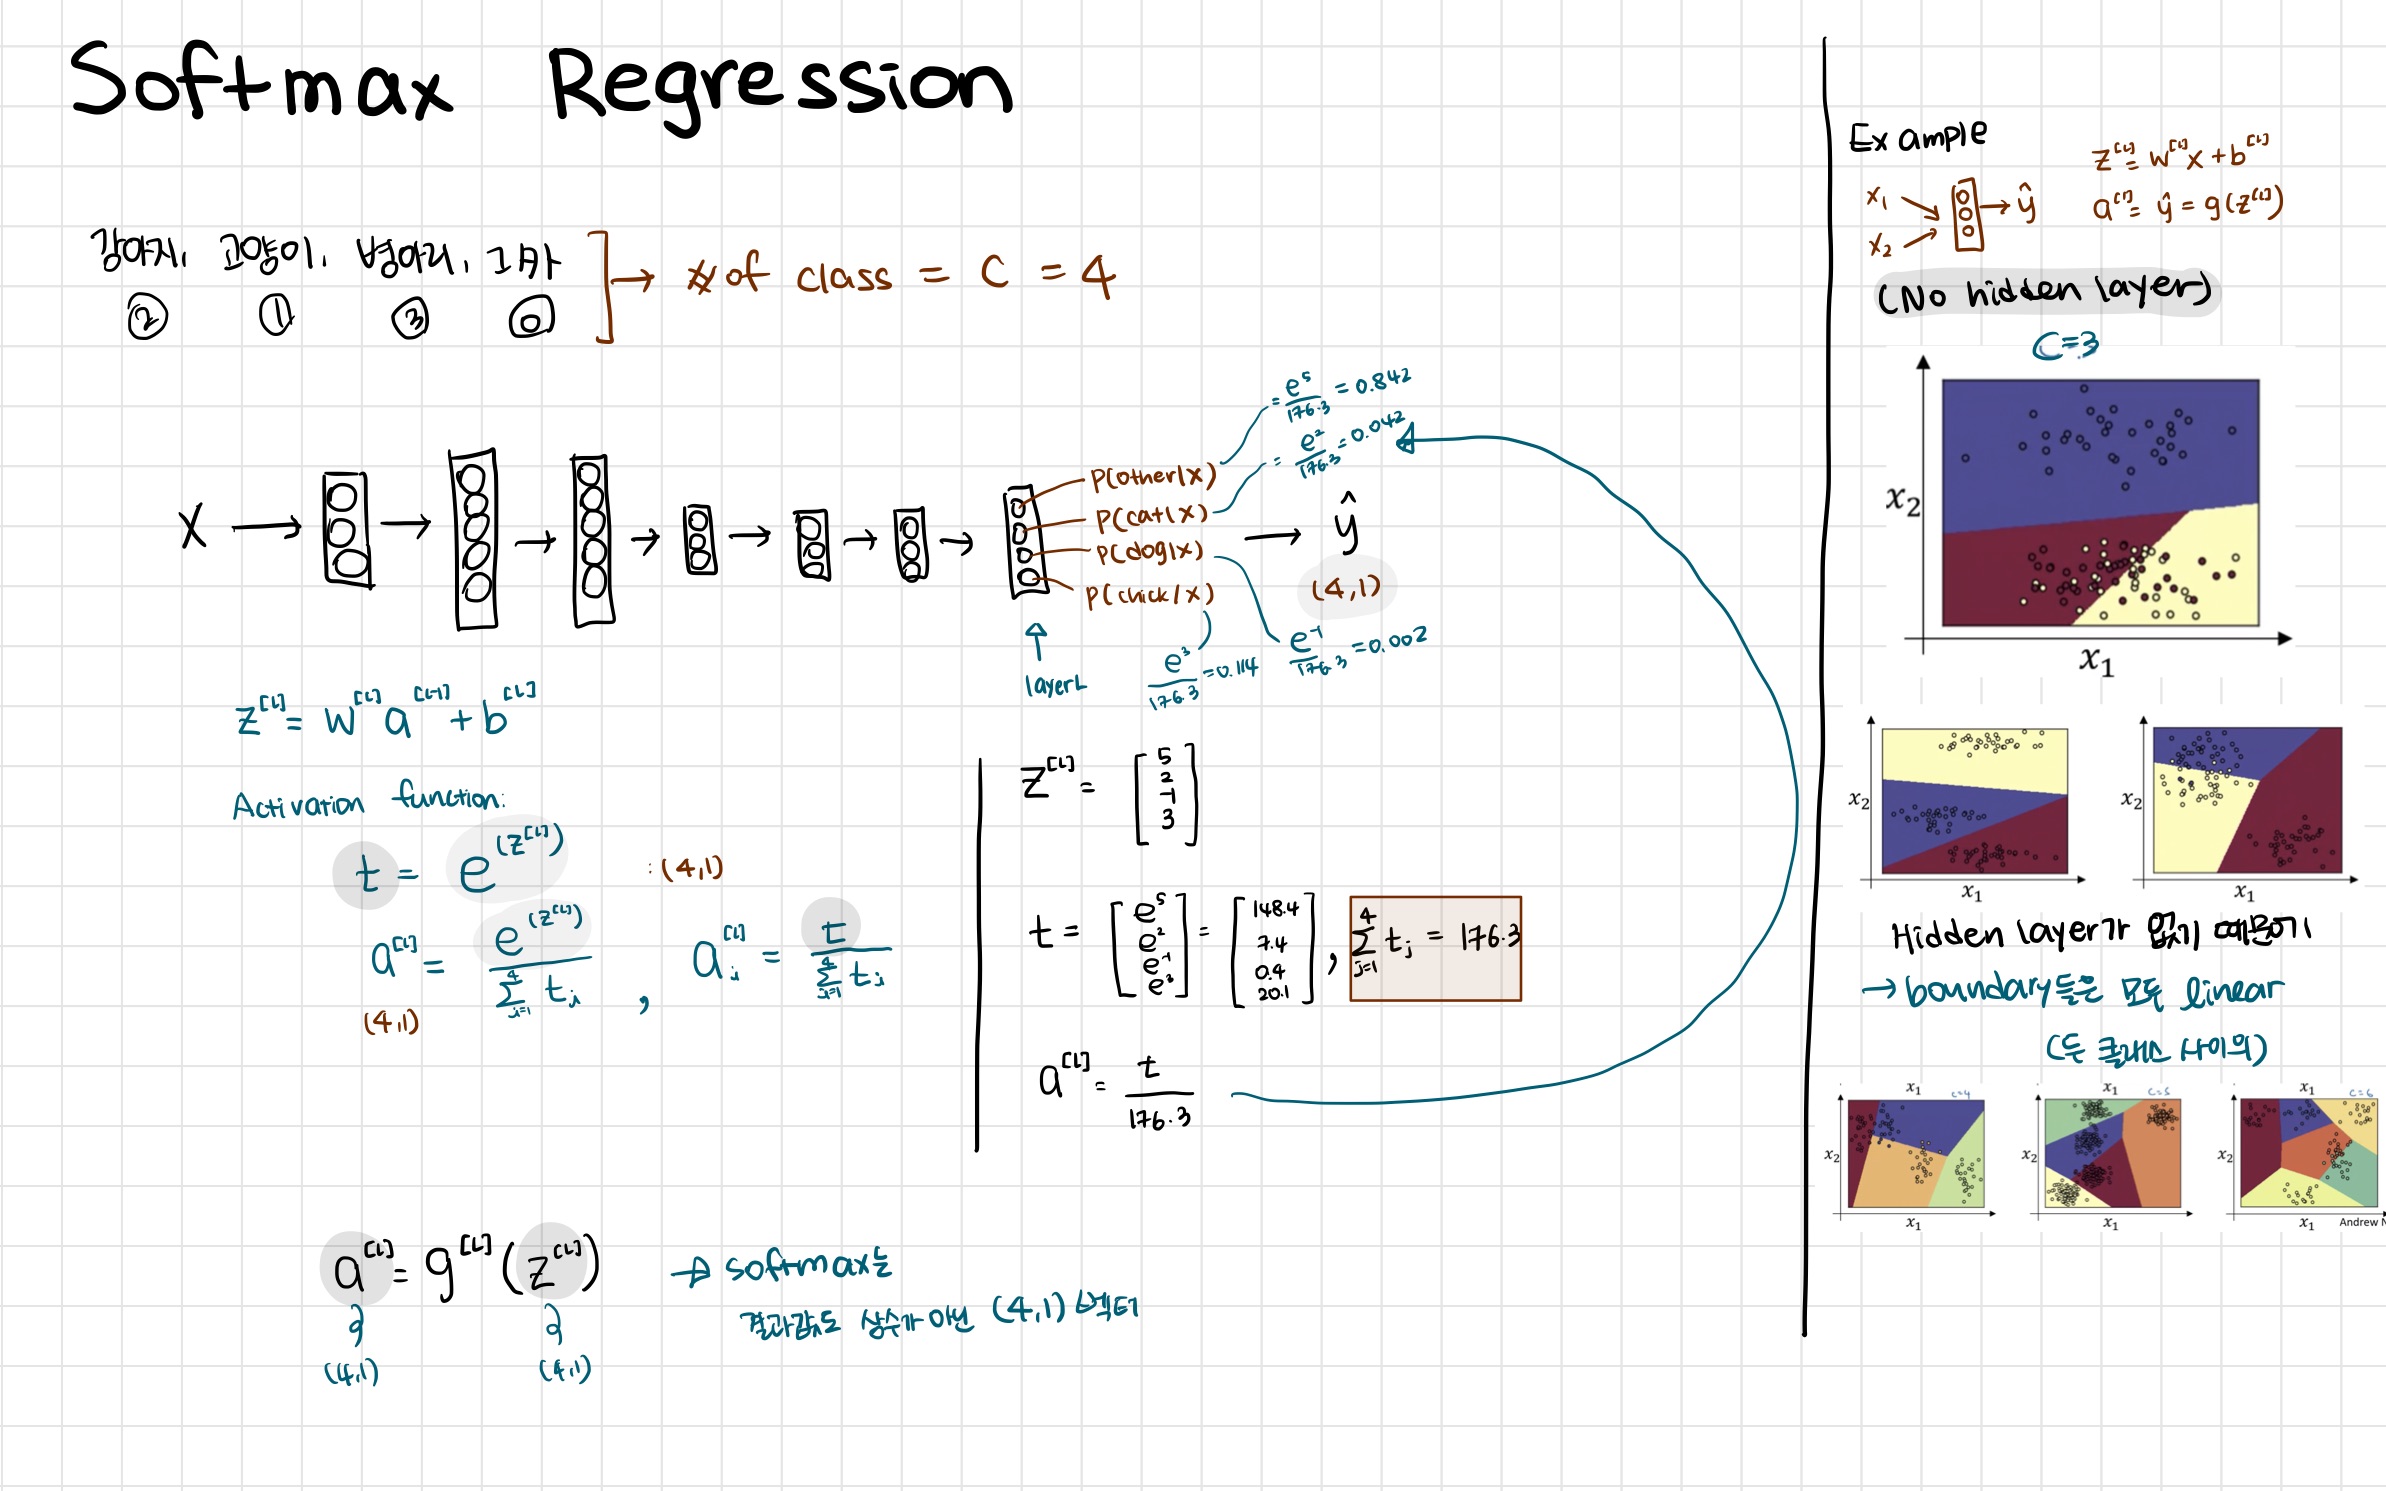 Softmax Regression
강아지, 고양이, 병아리, 그 밖
② ① ③ ⓪
→ # of class = C = 4
X → → → → → → → ŷ
P(other|x) = e⁵/176.3 = 0.842
P(cat|x) = e²/176.3 = 0.042
P(dog|x) e⁻¹/176.3 = 0.002
P(chick|x) e³/176.3 = 0.114
(4,1)
layer L
z^[L] = w^[L] a^[L-1] + b^[L]
Activation function:
t = e^(z^[L]) : (4,1)
a^[L] = e^(z^[L]) / Σ_{j=1}^{4} t_i , a_i^[L] = t / Σ_{j=1}^{4} t_i
(4,1)
z^[L] = [5 2 -1 3]
t = [e⁵ e² e⁻¹ e³] = [148.4 7.4 0.4 20.1] , Σ_{j=1}^{4} t_j = 176.3
a^[L] = t / 176.3
a^[L] = g^[L] (z^[L]) → softmax는
결과값도 상수가 아닌 (4,1) 벡터
(4,1) (4,1)
Example
x₁ x₂ → ŷ
z^[L] = w^[L] x + b^[L]
a^[L] = ŷ = g(z^[L])
(No hidden layer)
C=3
x₂
x₁
x₂ x₂
x₁ x₁
Hidden layer가 없기 때문에
→ boundary들은 모두 linear
(두 클래스 사이의)
x₁ C=4 x₁ C=5 x₁ C=6
x₂ x₂ x₂
x₁ x₁ x₁ Andrew N